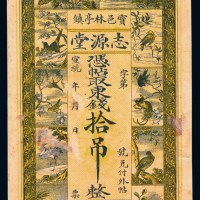 寶邑林亭鎮
志源堂
字第
憑帖取東錢拾吊整
宣統 年 月 日
號 兌付外帖